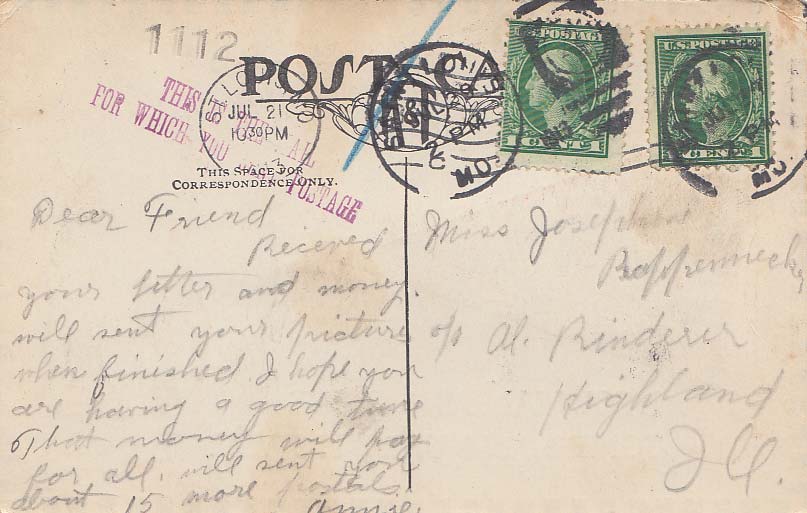 1112
POST CA
THIS IS THE MAIL
FOR WHICH YOU SENT POSTAGE
ST. LOUIS
JUL 21
10 30 PM
MO.
U.S. POSTAGE
1 CENT 1
U.S. POSTAGE
1 CENT 1
MO.
THIS SPACE FOR
CORRESPONDENCE ONLY.
Dear Friend
Recieved
your letter and money.
will sent your picture
when finished. I hope you
are having a good time
That money will pay
for all. will sent you
about 15 more postals.
Annie.
Miss Josephine
c/o Al. Rinderer
Highland
Ill.